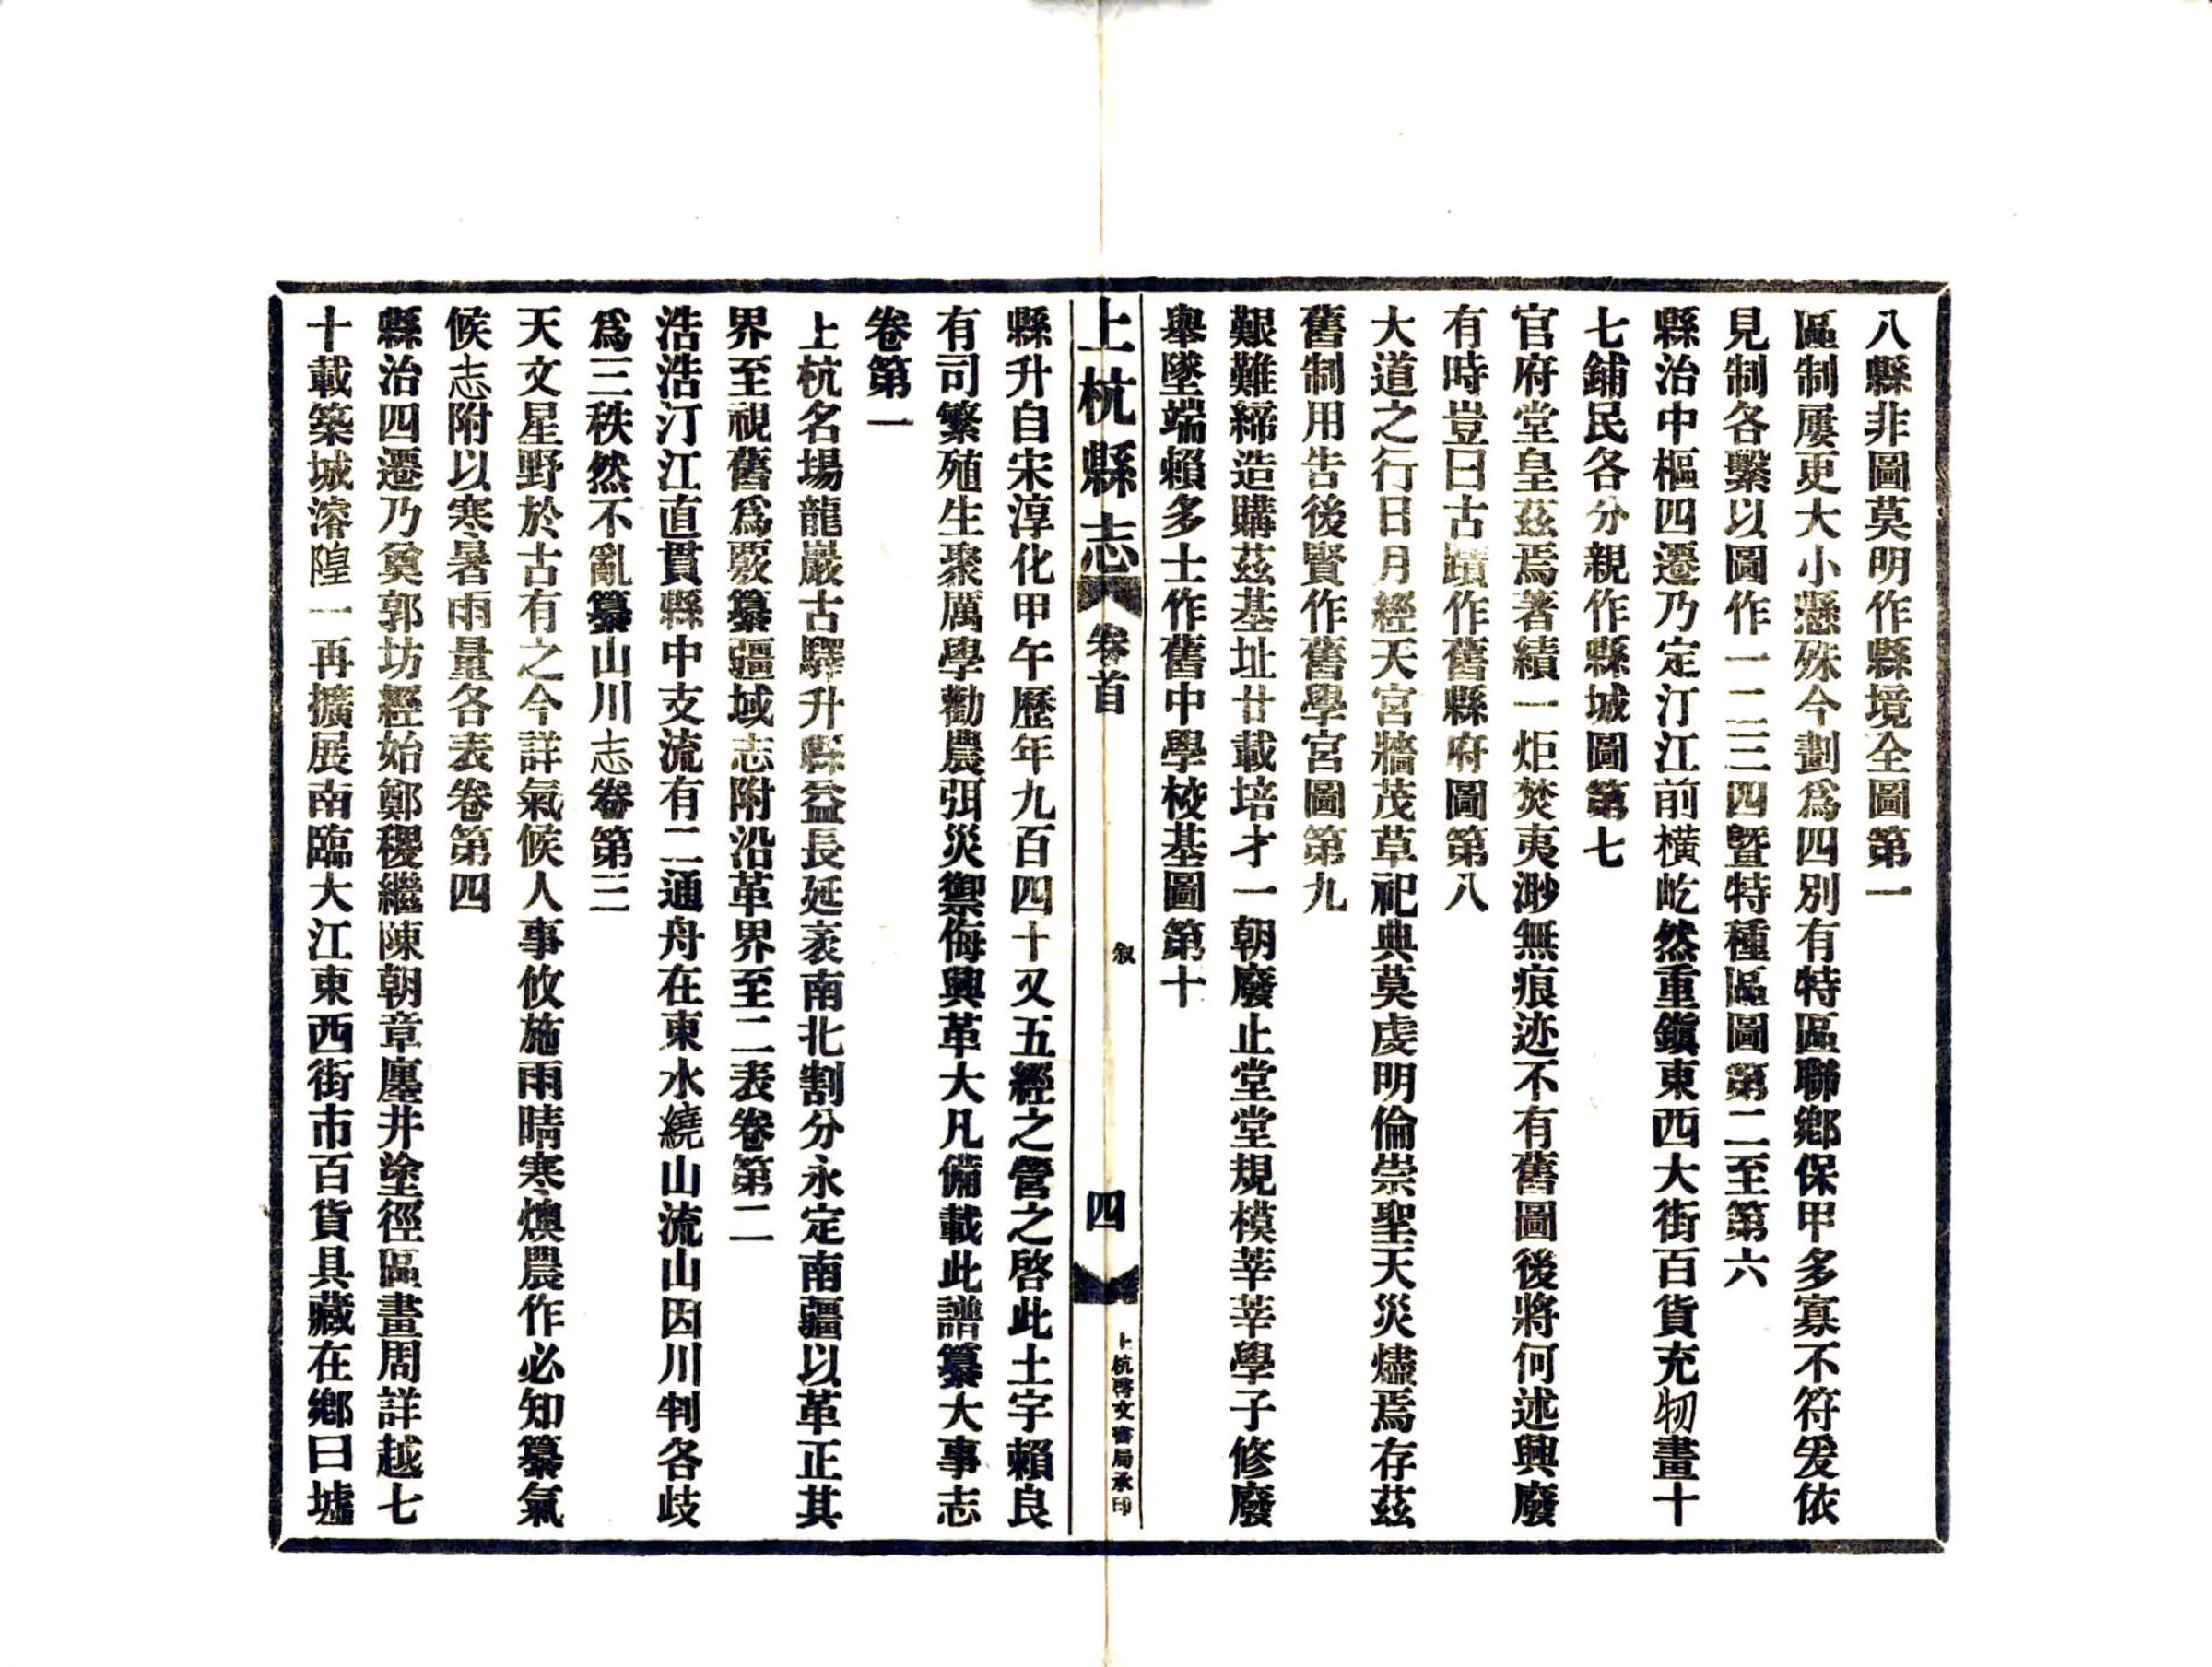 八縣非圖莫明作縣境全圖第一
區制屢更大小懸殊今劃爲四別有特區聯鄉保甲多寡不符爰依
見制各繫以圖作一二三四曁特種區圖第二至第六
縣治中樞四遷乃定汀江前橫屹然重鎭東西大街百貨充牣畫十
七鋪民各分親作縣城圖第七
官府堂皇茲焉著績一炬焚夷渺無痕迹不有舊圖後將何述興廢
有時豈曰古蹟作舊縣府圖第八
大道之行日月經天宮牆茂草祀典莫虔明倫崇聖天災燼焉存茲
舊制用告後賢作舊學宮圖第九
艱難締造購茲基址廿載培才一朝廢止堂堂規模莘莘學子修廢
舉墜端賴多士作舊中學校基圖第十
上杭縣志 卷首 叙 四 上杭啓文書局承印
縣升自宋淳化甲午歷年九百四十又五經之營之啓此土宇賴良
有司繁殖生聚厲學勸農弭災禦侮興革大凡備載此譜纂大事志
卷第一
上杭名場龍巖古驛升縣益長延袤南北割分永定南疆以革正其
界至視舊爲覈纂疆域志附沿革界至二表卷第二
浩浩汀江直貫縣中支流有二通舟在東水繞山流山因川判各歧
爲三秩然不亂纂山川志卷第三
天文星野於古有之今詳氣候人事攸施雨晴寒燠農作必知纂氣
候志附以寒暑雨量各表卷第四
縣治四遷乃奠郭坊經始鄭稷繼陳朝章廛井塗徑區畫周詳越七
十載築城濬隍一再擴展南臨大江東西街市百貨具藏在鄉曰墟